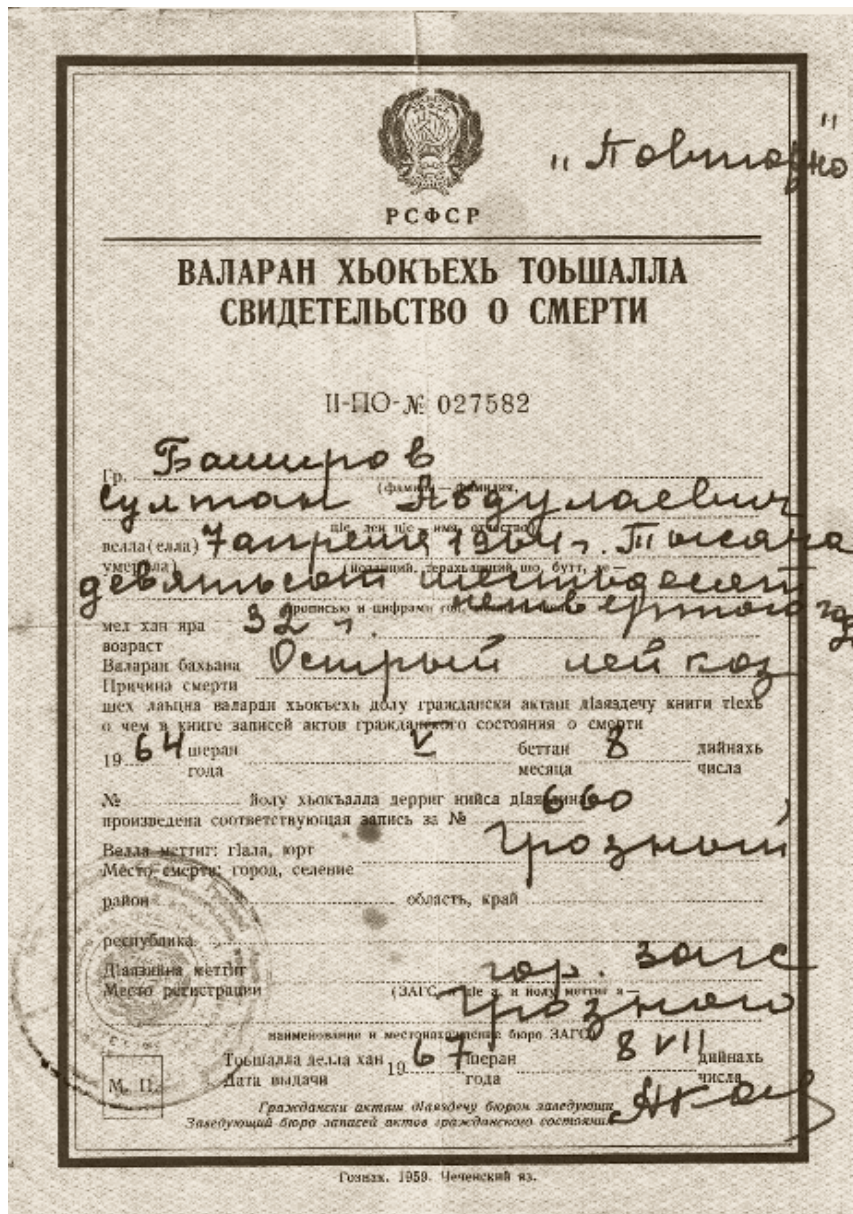 „Повторно"
РСФСР
ВАЛАРАН ХЬОКЪЕХЬ ТОЬШАЛЛА
СВИДЕТЕЛЬСТВО О СМЕРТИ
II-ПО-№ 027582
Гр. Баширов
(фамили — фамилия,
Султан Абдулаевич
цIе, ден цIе — имя, отчество)
велла (елла) 7 апреля 1964 г. Тысяча
умер(ла)
девятьсот шестьдесят
прописью и цифрами год,
четвертого
мел хан яра 32 г.
возраст
Валаран бахьана Острый лейкоз
Причина смерти
шех лаьцна валаран хьокъехь долу граждански акташ дIаяздечу книги тIехь
о чем в книге записей актов гражданского состояния о смерти
19 64 шеран V беттан 8 дийнахь
года месяца числа
№ йолу хьокъалла дерриг нийса дIаяздина 660
произведена соответствующая запись за №
Велла меттиг: гIала, юрт Грозный
Место смерти: город, селение
район область, край
республика
ДIаязйина меттиг гор. загс
Место регистрации (ЗАГС
Грозного
наименование и местонахождение бюро ЗАГС
Тоьшалла делла хан 19 67 шеран 8 VII дийнахь
М. П. Дата выдачи года числа
Граждански акташ дIаяздечу бюрон заведующи
Заведующий бюро записей актов гражданского состояния
Гознак. 1959. Чеченский яз.